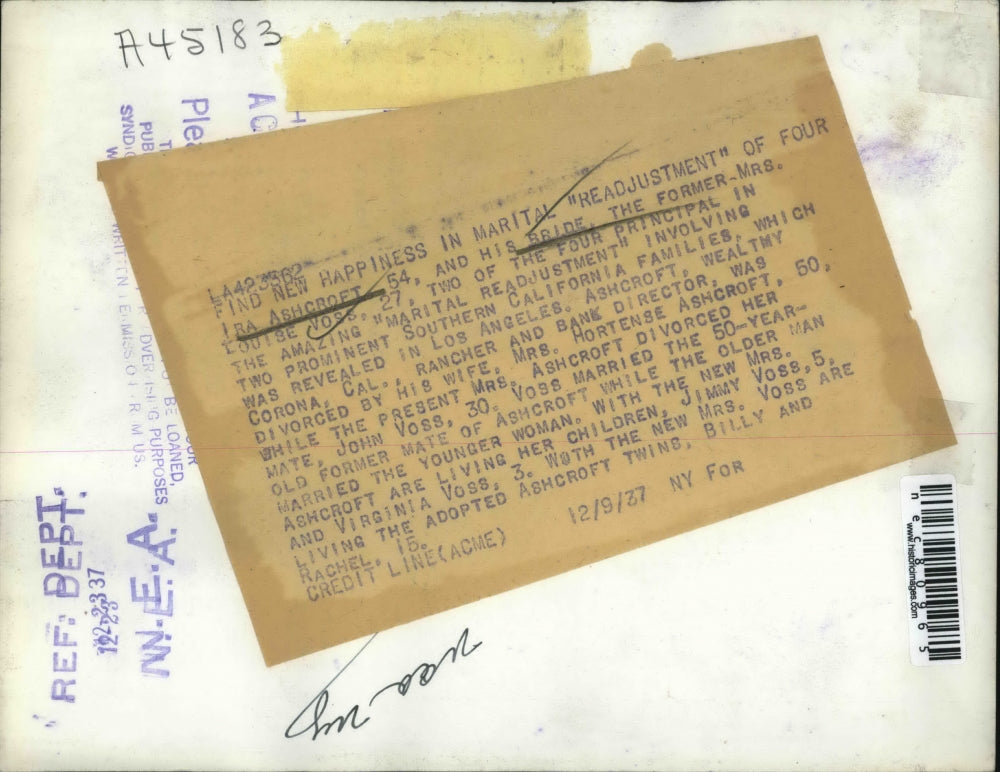 A45183
LA423562
FIND NEW HAPPINESS IN MARITAL "READJUSTMENT" OF FOUR
IRA ASHCROFT, 54, AND HIS BRIDE, THE FORMER MRS.
LOUISE VOSS, 27, TWO OF THE FOUR PRINCIPAL IN
THE AMAZING "MARITAL READJUSTMENT" INVOLVING
TWO PROMINENT SOUTHERN CALIFORNIA FAMILIES, WHICH
WAS REVEALED IN LOS ANGELES. ASHCROFT, WEALTHY
CORONA, CAL., RANCHER AND BANK DIRECTOR, WAS
DIVORCED BY HIS WIFE, MRS. HORTENSE ASHCROFT, 50,
WHILE THE PRESENT MRS. ASHCROFT DIVORCED HER
MATE, JOHN VOSS, 30. VOSS MARRIED THE 50-YEAR-
OLD FORMER MATE OF ASHCROFT WHILE THE OLDER MAN
MARRIED THE YOUNGER WOMAN. WITH THE NEW MRS.
ASHCROFT ARE LIVING HER CHILDREN, JIMMY VOSS, 5,
AND VIRGINIA VOSS, 3. WITH THE NEW MRS. VOSS ARE
LIVING THE ADOPTED ASHCROFT TWINS, BILLY AND
RACHEL, 15.
CREDIT LINE (ACME) 12/9/37 NY FOR
REF. DEPT.
N.E.A.
BE LOANED,
PURPOSES
M US.
nec80965
www.historicimages.com